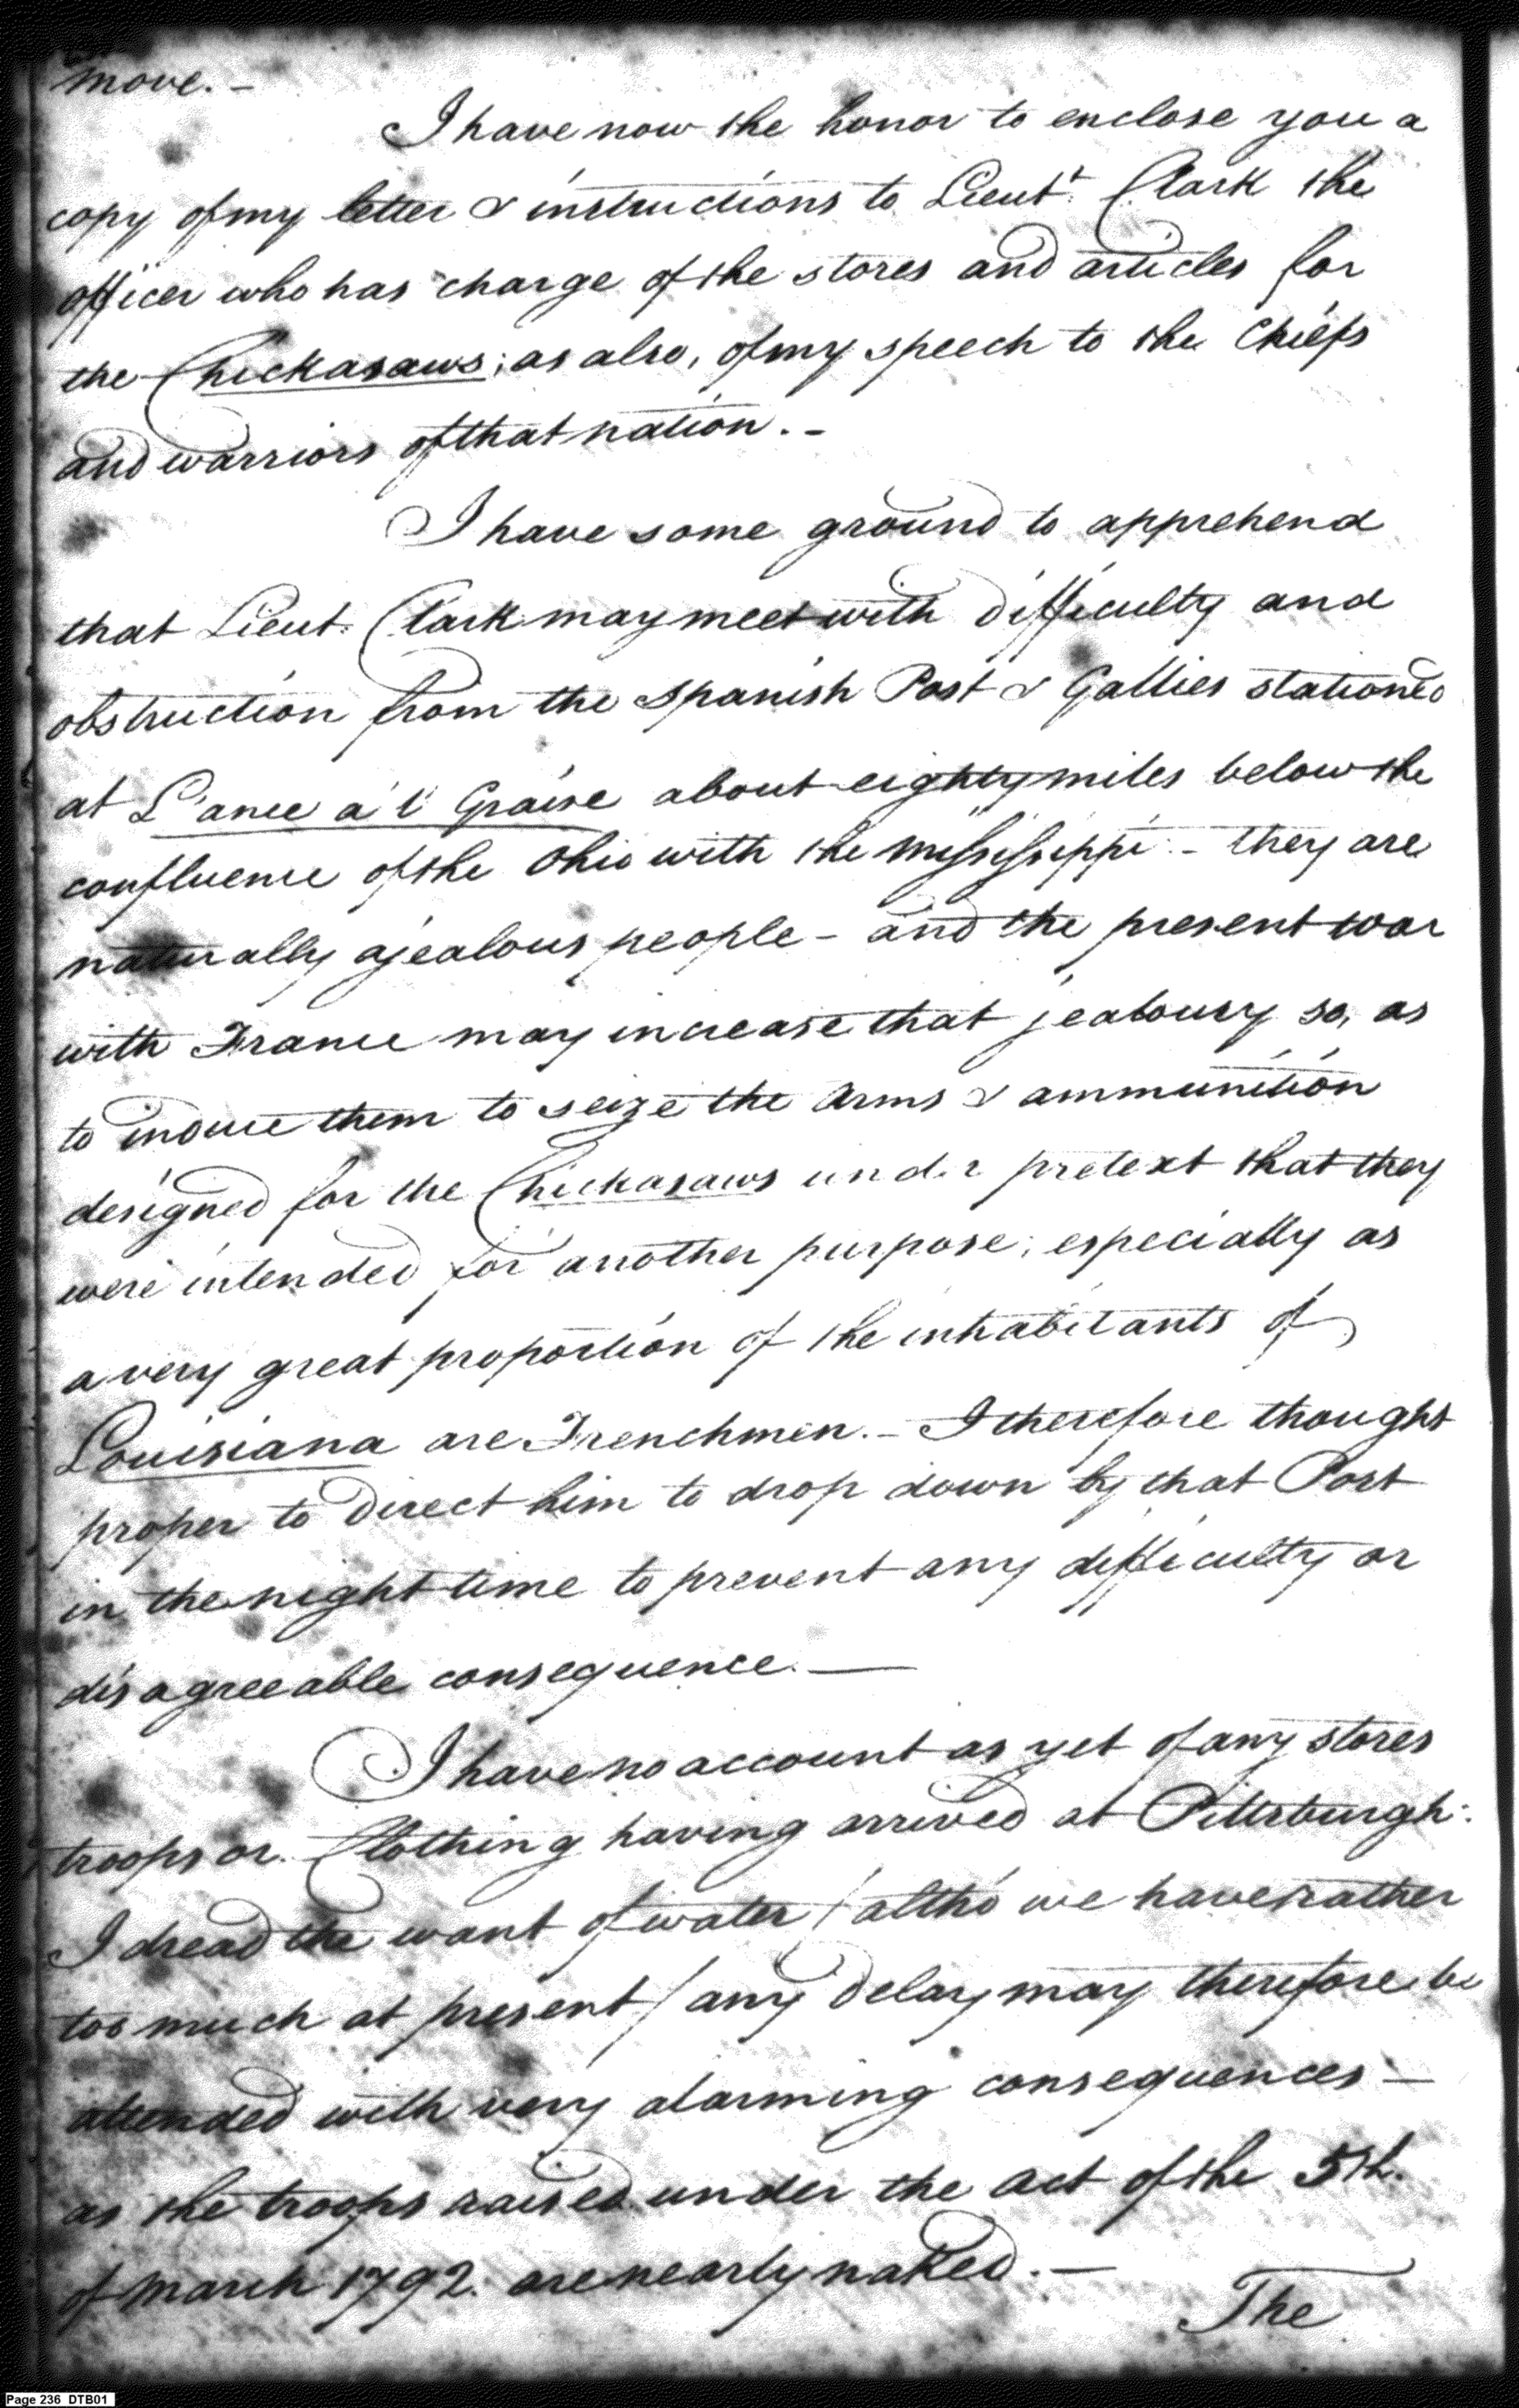 move. -
I have now the honor to enclose you a
copy of my letter & instructions to Lieut. Clark the
officer who has charge of the stores and articles for
the Chickasaws; as also, of my speech to the Chiefs
and warriors of that nation. -
I have some ground to apprehend
that Lieut. Clark may meet with difficulty and
obstruction from the Spanish Post & Gallies stationed
at L'ance a'l Graise about eighty miles below the
confluence of the Ohio with the Mississippi - they are
naturally a jealous people - and the present war
with France may increase that jealousy so, as
to induce them to seize the arms & ammunition
designed for the Chickasaws under pretext that they
were intended for another purpose; especially as
a very great proportion of the inhabitants of
Louisiana are Frenchmen. - I therefore thought
proper to direct him to drop down by that Post
in the night time to prevent any difficulty or
disagreeable consequence. —
I have no account as yet of any stores
troops or Clothing having arrived at Pittsburgh:
I dread the want of water / altho' we have rather
too much at present / any delay may therefore be
attended with very alarming consequences —
as the troops raised under the act of the 5th.
of March 1792. are nearly naked. —
The
Page 236 DTB01